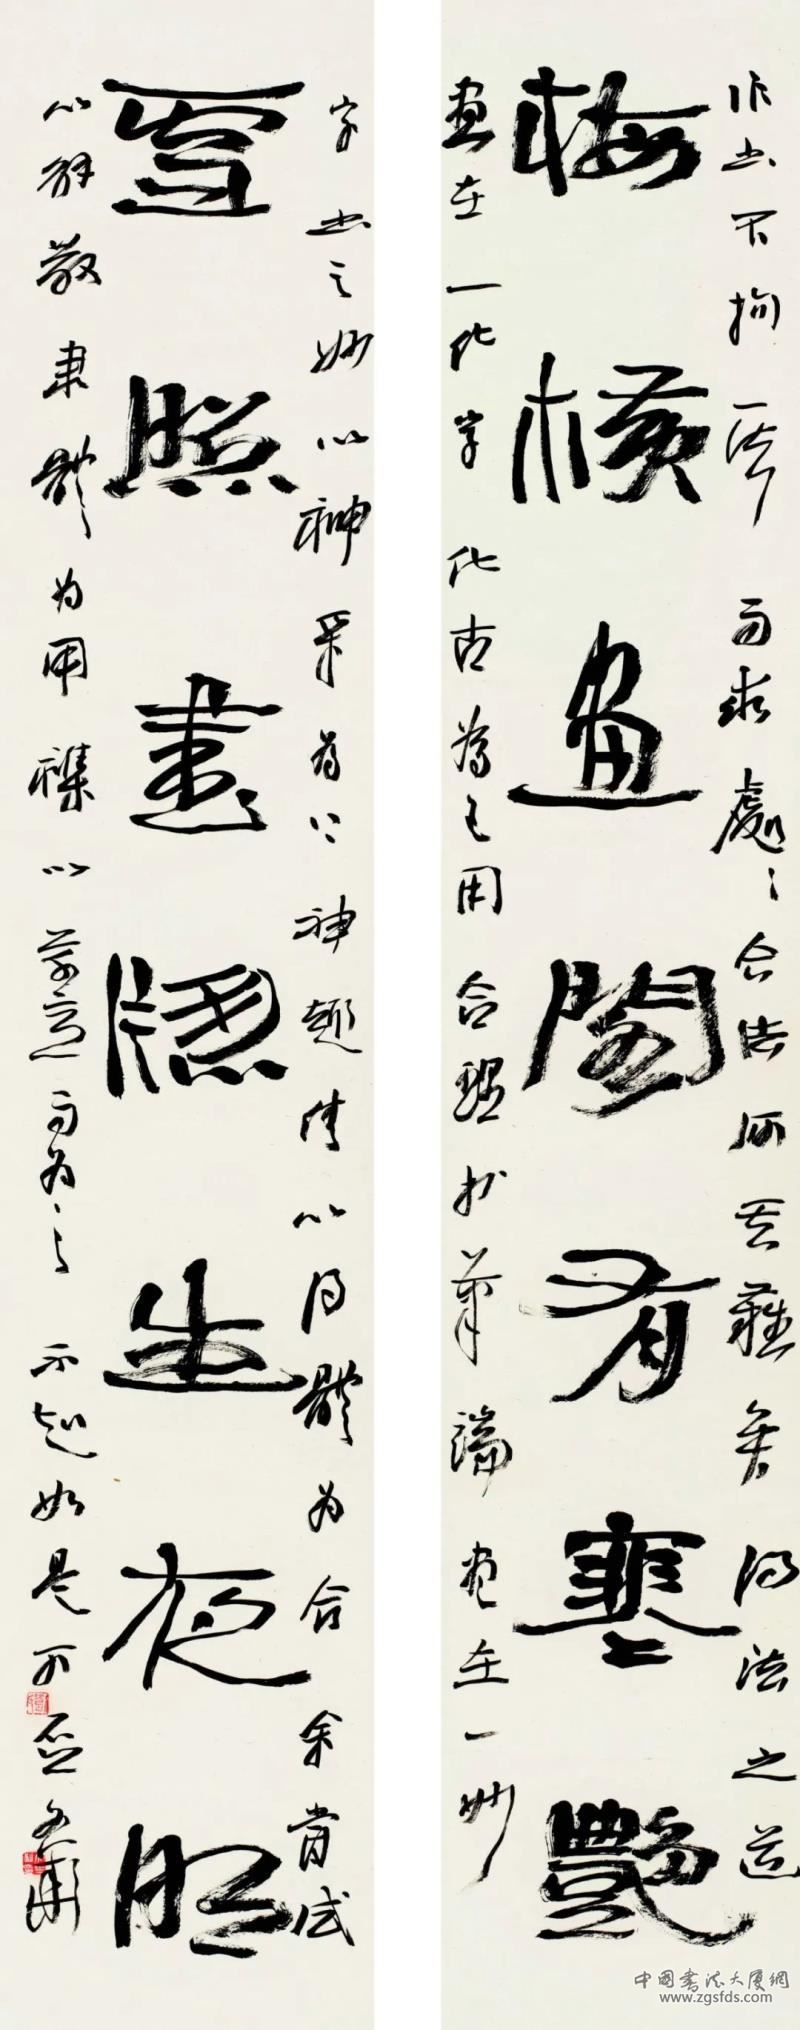 梅横画阁有寒艳
作书不拘一法而求处处合法所至虽实得法之道
画在一化字化古为己用合理于笔端画在一妙
雪照书窗生夜明
字书之妙以神采为上神趣情以得体为合余尝试
以解散隶体为用杂以草意而为之不知如是可否
中国书法大厦网
www.zgsfds.com